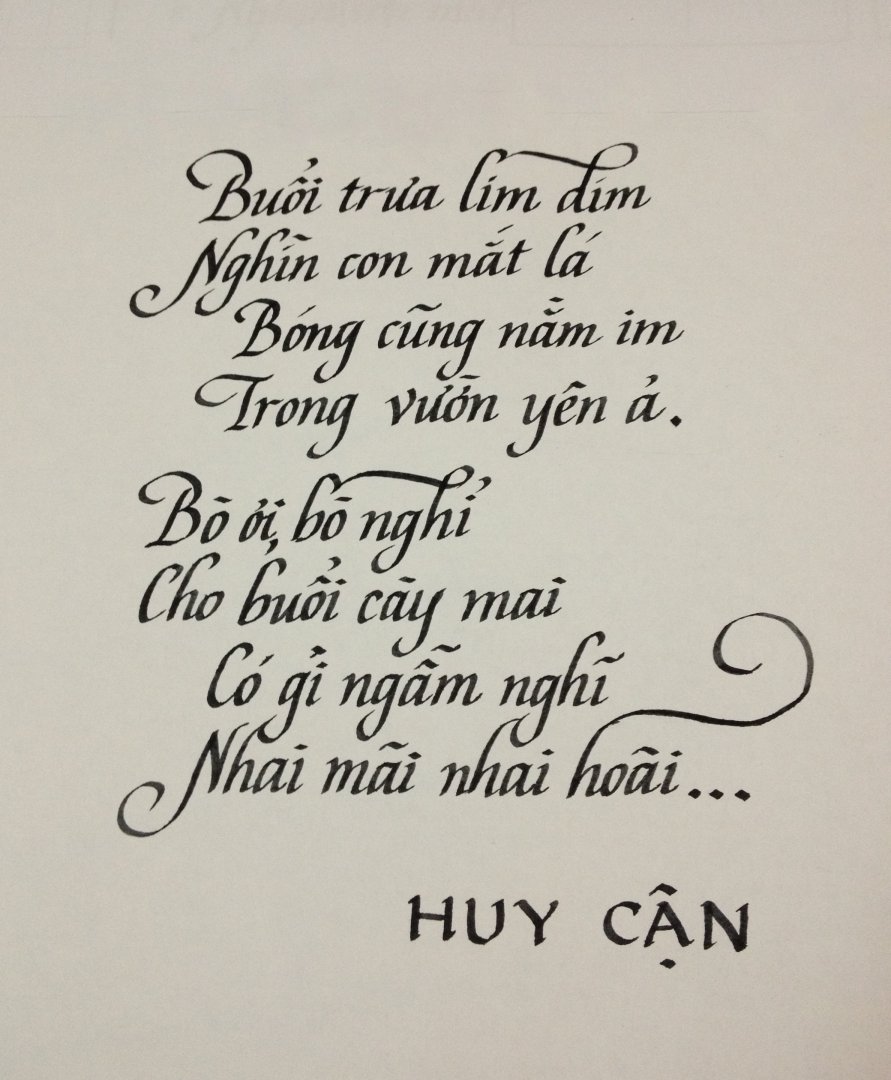 Buổi trưa lim dim
Nghìn con mắt lá
Bóng cũng nằm im
Trong vườn yên ả.
Bò ơi, bò nghỉ
Cho buổi cày mai
Có gì ngẫm nghĩ
Nhai mãi nhai hoài...
HUY CẬN